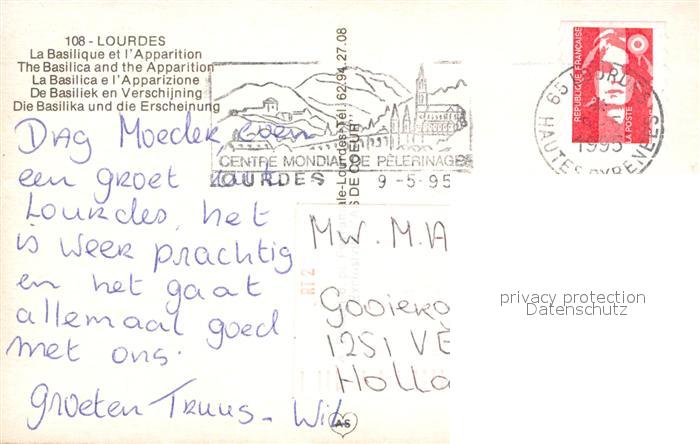 108 - LOURDES
La Basilique et l'Apparition
The Basilica and the Apparition
La Basilica e l'Apparizione
De Basiliek en Verschijning
Die Basilika und die Erscheinung
Dag Moeder
een groet
Lourdes, het
is weer prachtig
en het gaat
allemaal goed
met ons.
Groeten Truus - Wil
CENTRE MONDIAL DE PÈLERINAGE
LOURDES 9-5-95
ale-Lourdes-Tél. 62.94.27.08
S DE COEUR"
REPUBLIQUE FRANÇAISE
LA POSTE
65 LOURDES
1995
HAUTES PYRENEES
RT2
Mw. M. A
Gooiero
1251 VE
Holla
AS
privacy protection
Datenschutz